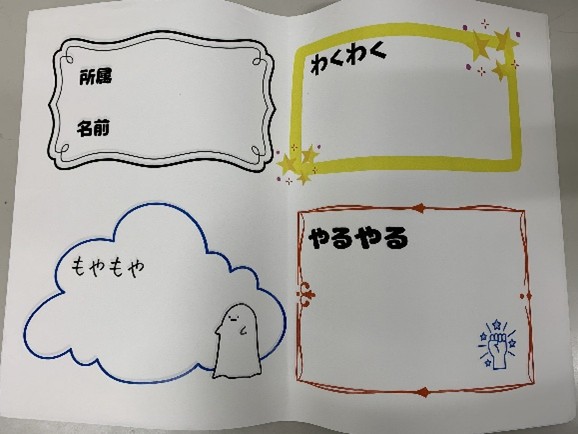 所属
名前
わくわく
もやもや
やるやる